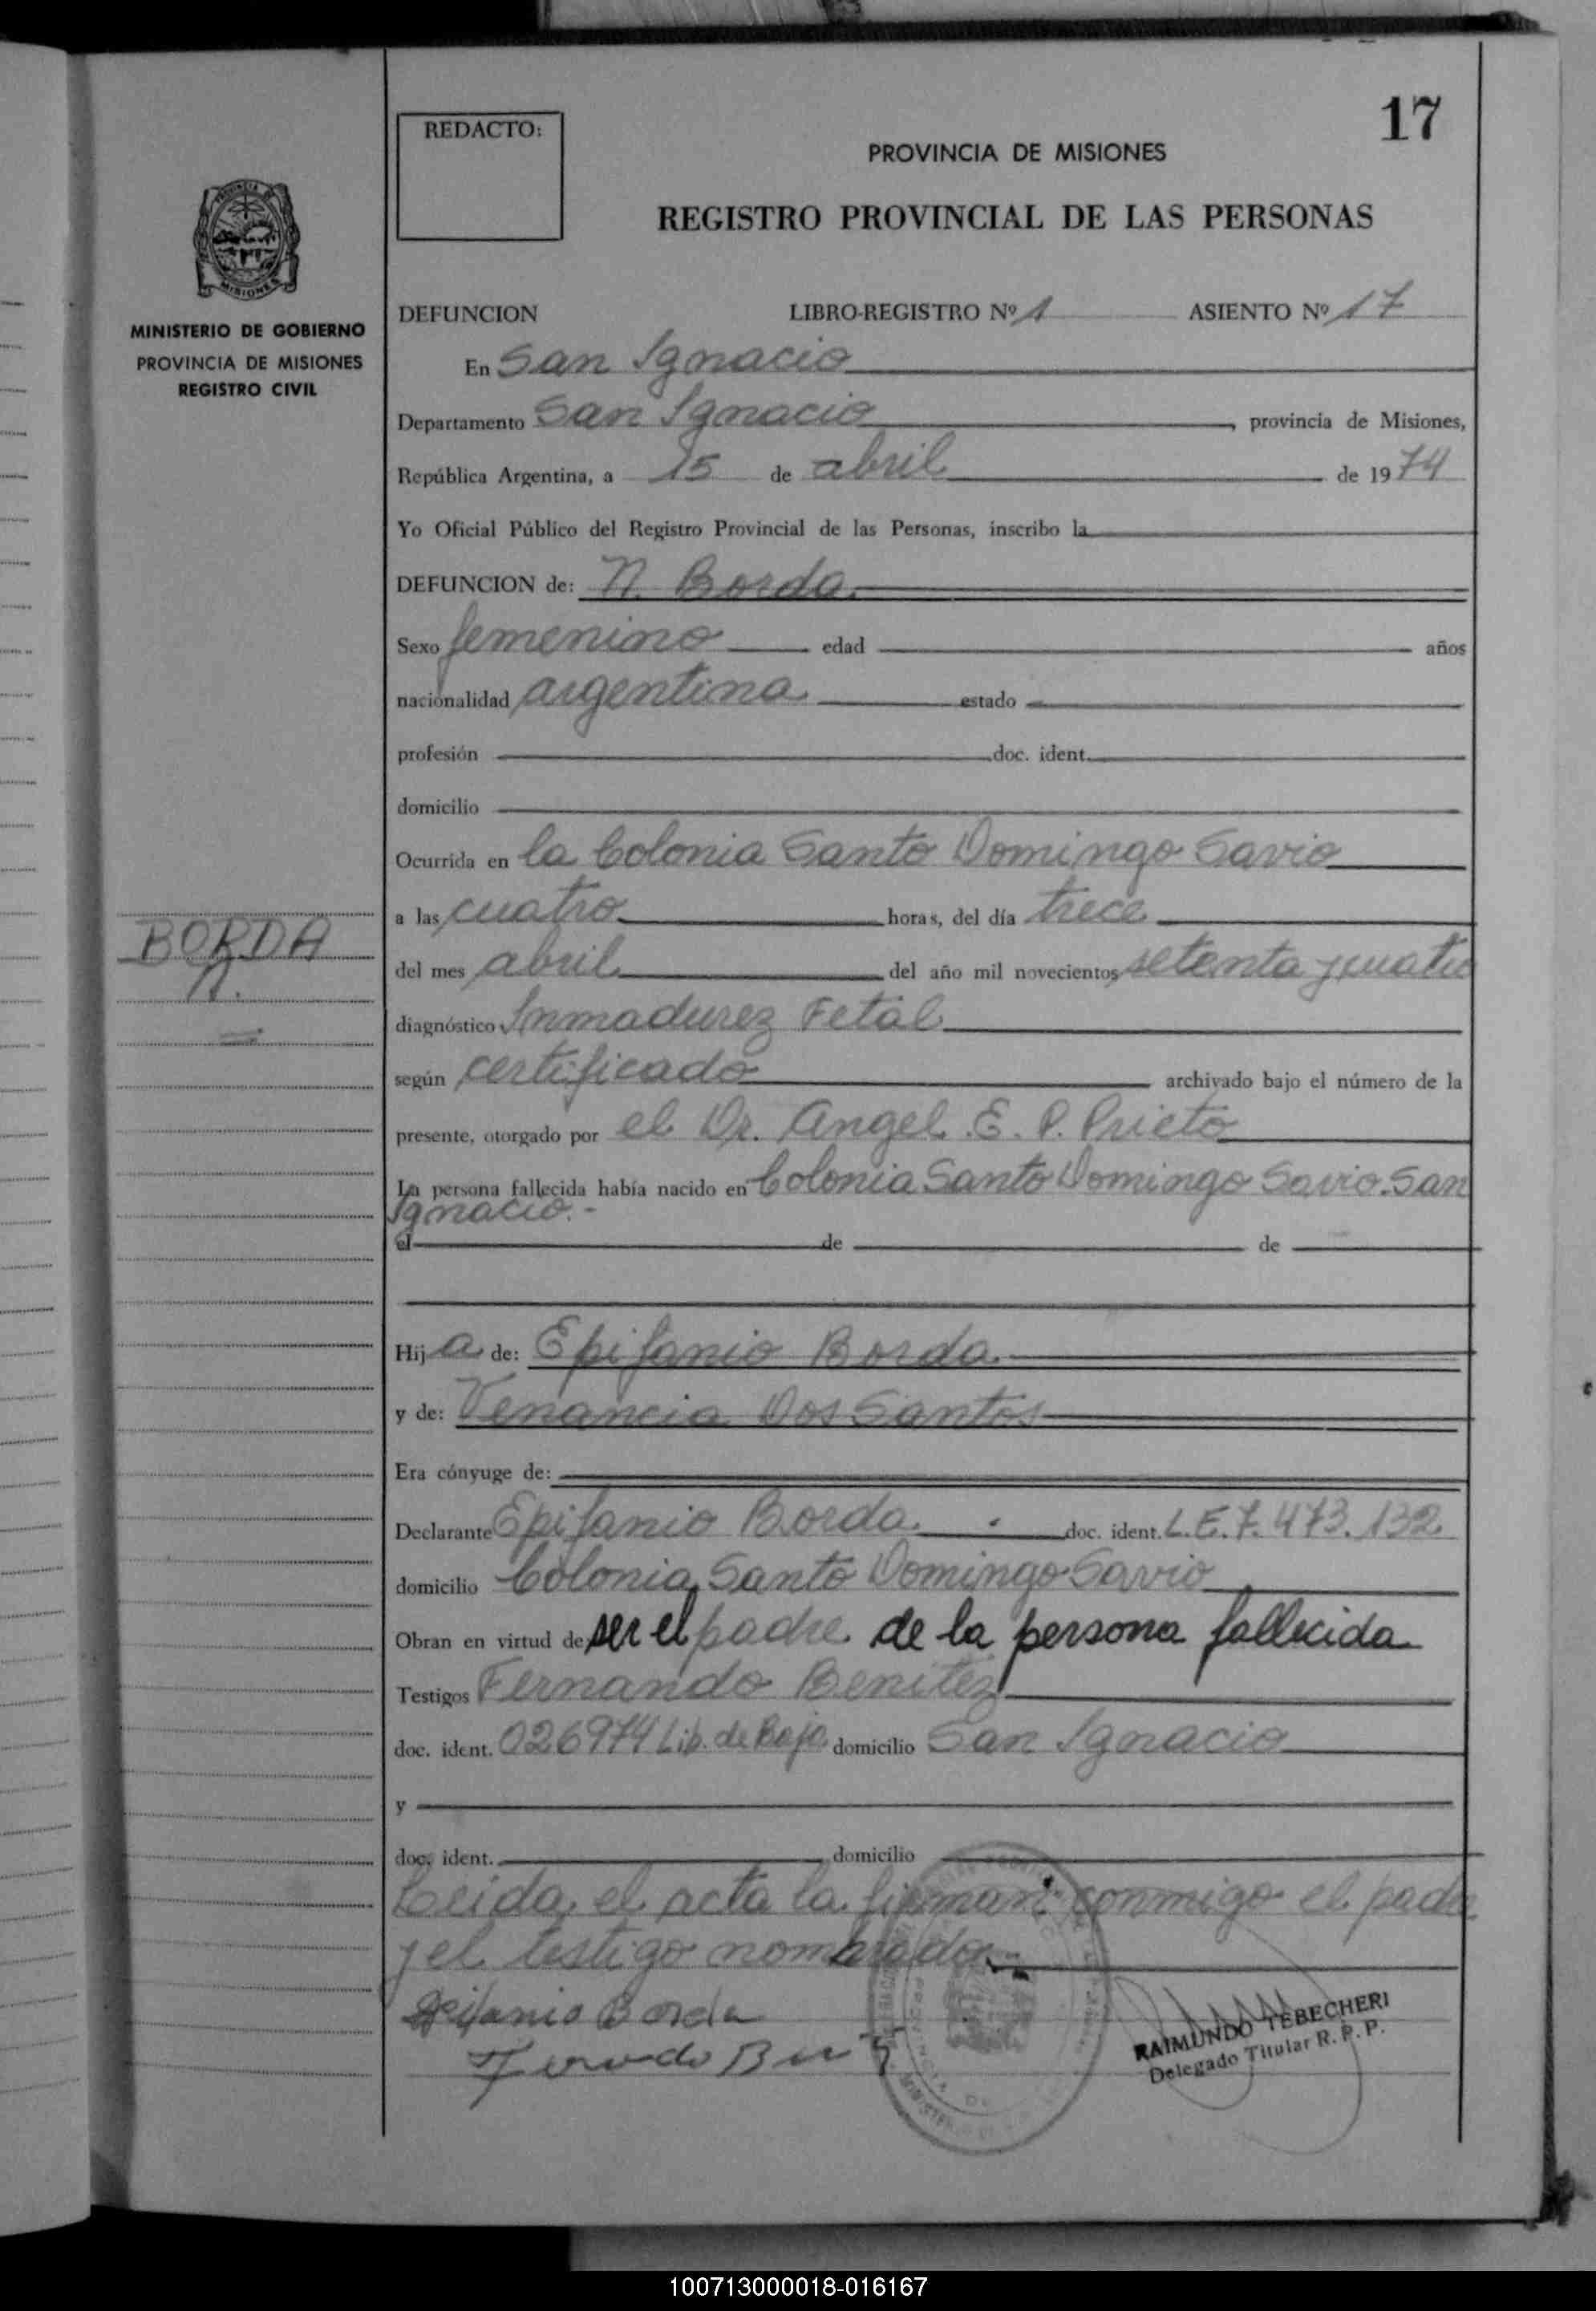 17
REDACTO:
PROVINCIA DE MISIONES
REGISTRO PROVINCIAL DE LAS PERSONAS
MISIONES
MINISTERIO DE GOBIERNO
PROVINCIA DE MISIONES
REGISTRO CIVIL
DEFUNCION LIBRO-REGISTRO Nº 1 ASIENTO Nº 17
En San Ignacio
Departamento San Ignacio, provincia de Misiones,
República Argentina, a 15 de abril de 1974
Yo Oficial Público del Registro Provincial de las Personas, inscribo la
DEFUNCION de: N. Borda.
Sexo femenino edad años
nacionalidad argentina estado
profesión doc. ident.
domicilio
Ocurrida en la Colonia Santo Domingo Savio
a las cuatro horas, del día trece
BORDA
N.
del mes abril del año mil novecientos setenta y cuatro
diagnóstico Inmadurez Fetal
según certificado archivado bajo el número de la
presente, otorgado por el Dr. Angel E. P. Prieto
La persona fallecida había nacido en Colonia Santo Domingo Savio. San
Ignacio.-
el de de
Hija de: Epifanio Borda
y de: Venancia Dos Santos
Era cónyuge de:
Declarante Epifanio Borda. doc. ident. L.E. 7.473.132
domicilio Colonia Santo Domingo Savio
Obran en virtud de ser el padre de la persona fallecida
Testigos Fernando Benitez
doc. ident. 026974 Lib. de Baja domicilio San Ignacio
y
doc. ident. domicilio
Leida el acta la firman conmigo el padre
y el testigo nombrado.
Epifanio Borda
RAIMUNDO TEBECHERI
Delegado Titular R. P. P.
100713000018-016167